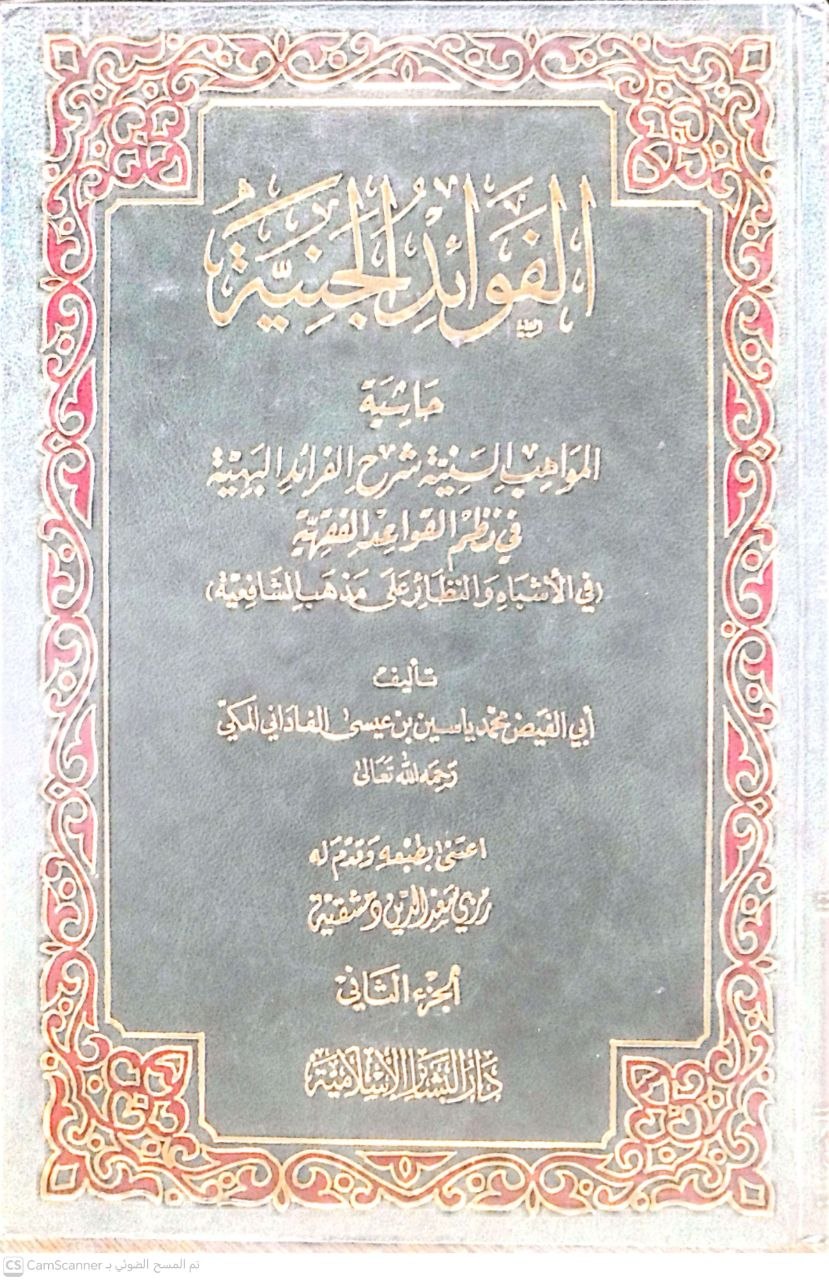 الفَوَائِدُ الجَنِيَّةُ
حَاشِيَة
المَوَاهِبُ السَنِيَّة شَرح الفَرائِد البَهِيَّة
في نَظمِ القَواعِد الفِقهِيَّة
(في الأَشبَاهِ وَالنظَائِر عَلى مَذهَب الشَافِعِيَّة)
تأليف
أبي الفَيض محمّد ياسين بن عيسى الفاداني المكيّ
رَحِمَه الله تَعَالى
اعتَنى بطبعِهِ وَقدّمَ لَه
رمزي سَعد الدين دمشقية
الجُزء الثَاني
دَارُ البَشَائِر الإِسْلَامِيَّة
CS CamScanner تم المسح الضوئي بـ